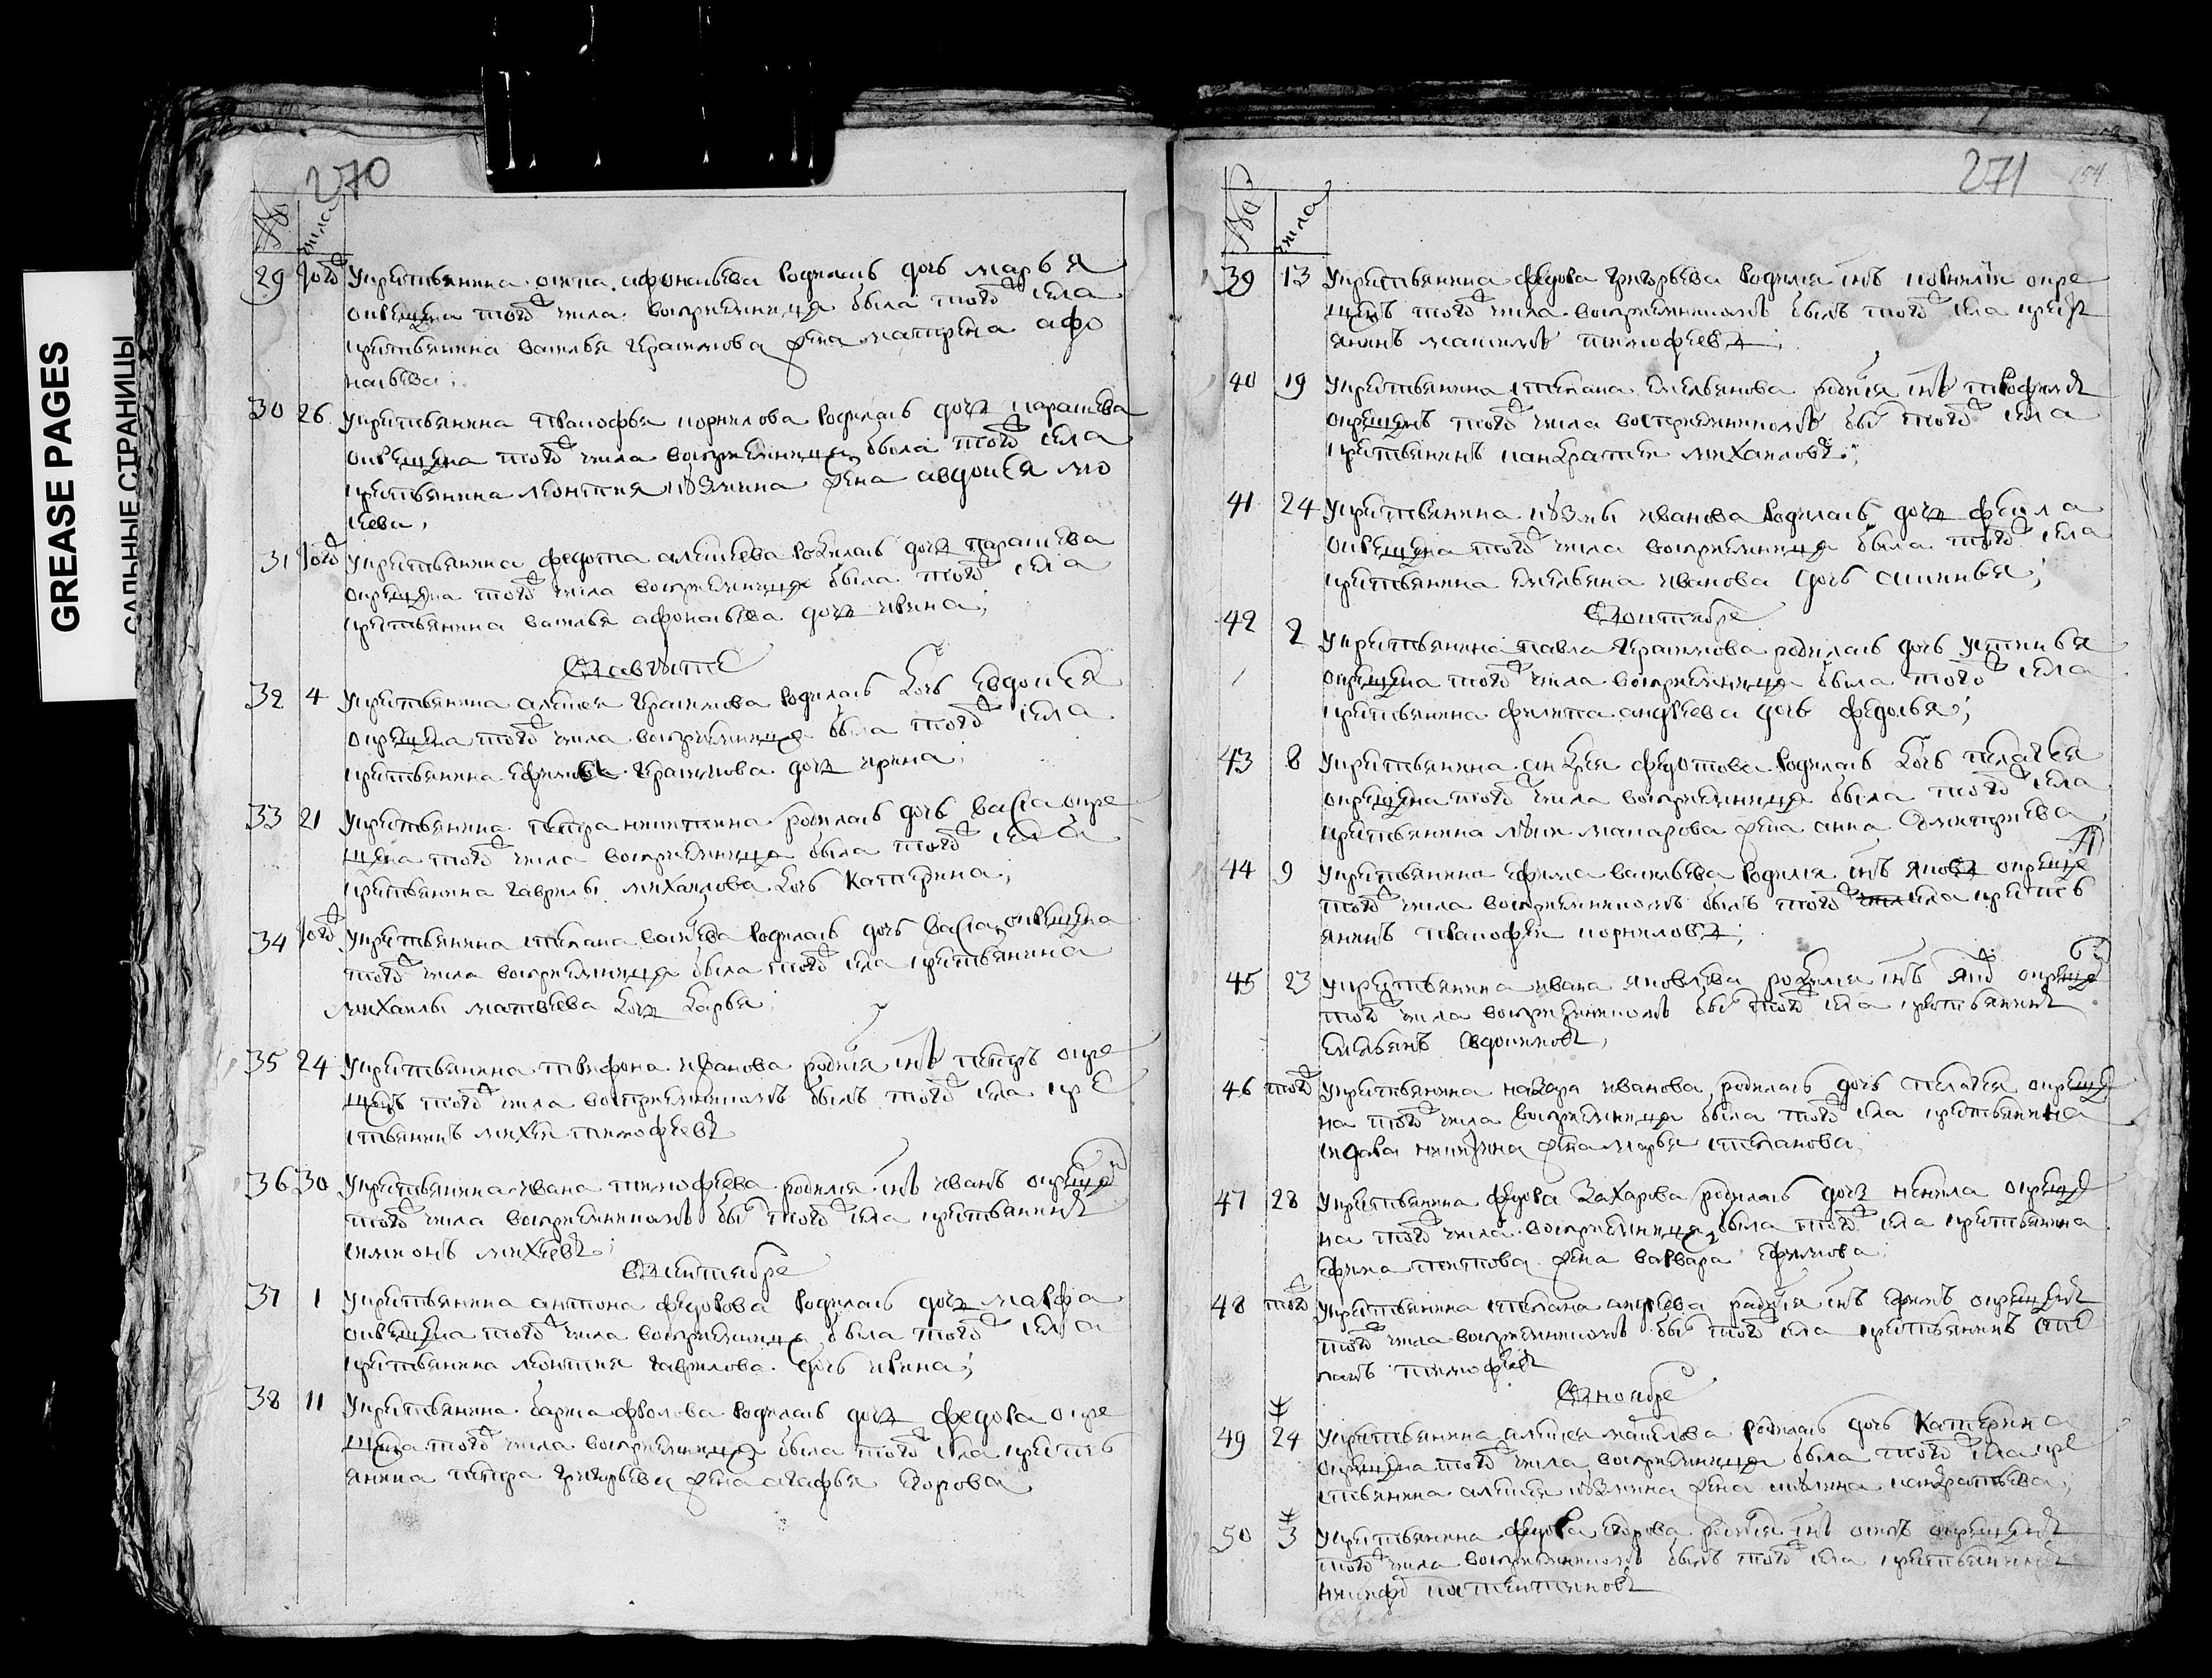 GREASE PAGES
САЛЬНЫЕ СТРАНИЦЫ
270
№ числа
29 того У крестьянина осипа афонасьева родилась дочь марья
окрещена того числа восприемница была того села
крестьянина василья герасимова жена матрена афо
насьева;
30 26 У крестьянина прокофья корнилова родилась дочь парасковья
окрещена того числа восприемница была того села
крестьянина леонтия козмина жена авдотья мо
сеева;
31 того У крестьянина федота алексеева родилась дочь парасковья
окрещена того числа восприемница была того села
крестьянина василья афонасьева дочь ирина;
въ августе
32 4 У крестьянина алексея герасимова родилась дочь евдокея
окрещена того числа восприемница была того села
крестьянина ефима герасимова дочь ирина;
33 21 У крестьянина петра никитина родилась дочь васса окре
щена того числа восприемница была того села
крестьянина гаврилы михаилова дочь катерина;
34 того У крестьянина степана васильева родилась дочь васса окрещена
того числа восприемница была того села крестьянина
михаилы матвеева дочь дарья;
35 24 У крестьянина трифона иванова родился снъ петръ окре
щенъ того числа восприемникомъ былъ того села кре
стьянинъ михеи тимофеевъ
36 30 У крестьянина ивана тимофеева родился снъ иванъ окрещенъ
того числа восприемникомъ бы того села крестьянинъ
симионъ михеевъ;
въ сентябре
37 1 У крестьянина антона федорова родилась дочь марфа
окрещена того числа восприемница была того села
крестьянина леонтия гаврилова дочь ирина;
38 11 У крестьянина карпа фролова родилась дочь федора окре
щена того числа восприемница была того села кресть
янина петра григорьева жена агафья егорова
271
№ числа
39 13 У крестьянина федора григорьева родился снъ корнилеи окре
щенъ того числа восприемникомъ былъ того села крестьянинъ максимъ тимофеевъ;
40 19 У крестьянина степана емельянова родился снъ трофимъ
окрещенъ того числа восприемникомъ бы того села
крестьянинъ панкратеи михаиловъ;
41 24 У крестьянина козмы иванова родилась дочь фекла
окрещена того числа восприемница была того села
крестьянина емельяна иванова дочь аксинья;
въ октябре
42 2 У крестьянина павла герасимова родилась дочь устинья
окрещена того числа восприемница была того села
крестьянина филипа андреева дочь федосья;
43 8 У крестьянина андрея федотова родилась дочь пелагея
окрещена того числа восприемница была того села
крестьянина луки макарова жена анна дмитриева
44 9 У крестьянина ефима васильева родился снъ яковъ окрещенъ
того числа восприемникомъ былъ того села кресть
янинъ прокофеи корниловъ;
45 23 У крестьянина ивана яковлева родился снъ яковъ окрещенъ
того числа восприемникомъ бы того села крестьянинъ
емельянъ евдокимовъ;
46 того У крестьянина назара иванова родилась дочь пелагея окреще
на того числа восприемница была того села крестьянина
сидора никитина жена марья степанова;
47 28 У крестьянина федора захарова родилась дочь ненила окреще
на того числа восприемница была того села крестьянина
ефима титова жена варвара ефимова;
48 того У крестьянина степана андреева родился снъ ефимъ окрещенъ
того числа восприемникомъ бы того села крестьянинъ сте
панъ тимофеевъ
въ ноябре
49 24 У крестьянина алексея родилась дочь катерина
окрещена того числа восприемница была того села кре
стьянина алексея козмина жена акулина панкратьева;
50 3 У крестьянина федора егорова родился снъ осипъ окрещенъ
того числа восприемникомъ былъ того села крестьянинъ
никифоръ костентиновъ